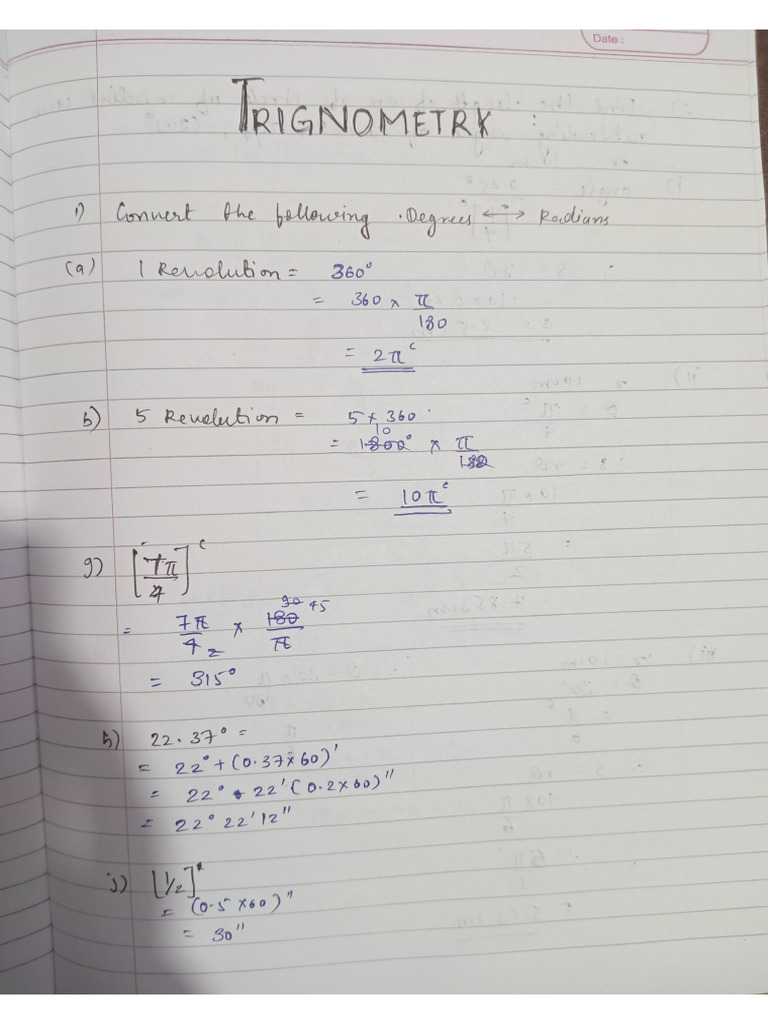 Date :
TRIGNOMETRY :
1) Convert the following . Degrees ↔ Radians
(a) 1 Revolution = 360°
= 360 × π/180
= 2πᶜ
b) 5 Revolution = 5 × 360
= 1800° × π/180 10
= 10πᶜ
g) [7π/4]ᶜ
= 7π/4 2 × 180/π 90 45
= 315°
h) 22.37° =
= 22° + (0.37×60)'
= 22° 22' (0.2×60)"
= 22° 22' 12"
j) [1/2]'
= (0.5 ×60)"
= 30"